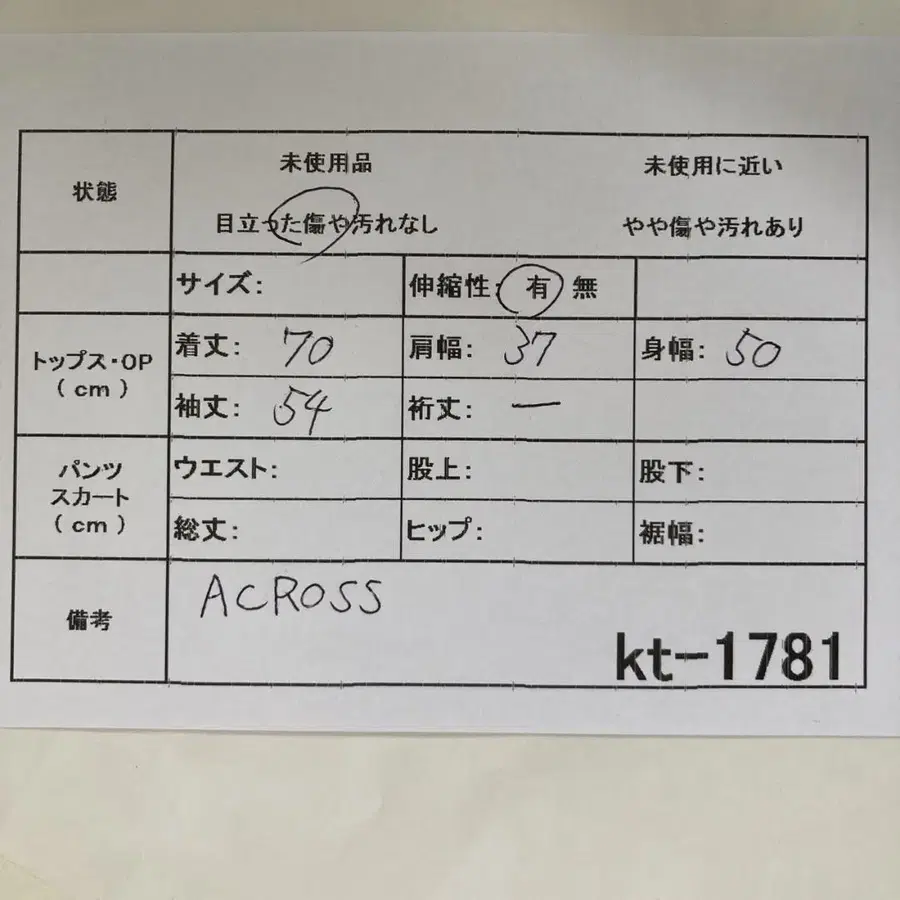 状態
未使用品 未使用に近い
目立った傷や汚れなし やや傷や汚れあり
サイズ: 伸縮性: 有 無
トップス・OP
(cm)
着丈: 70 肩幅: 37 身幅: 50
袖丈: 54 裄丈: ー
パンツ
スカート
(cm)
ウエスト: 股上: 股下:
総丈: ヒップ: 裾幅:
備考
ACROSS
kt-1781